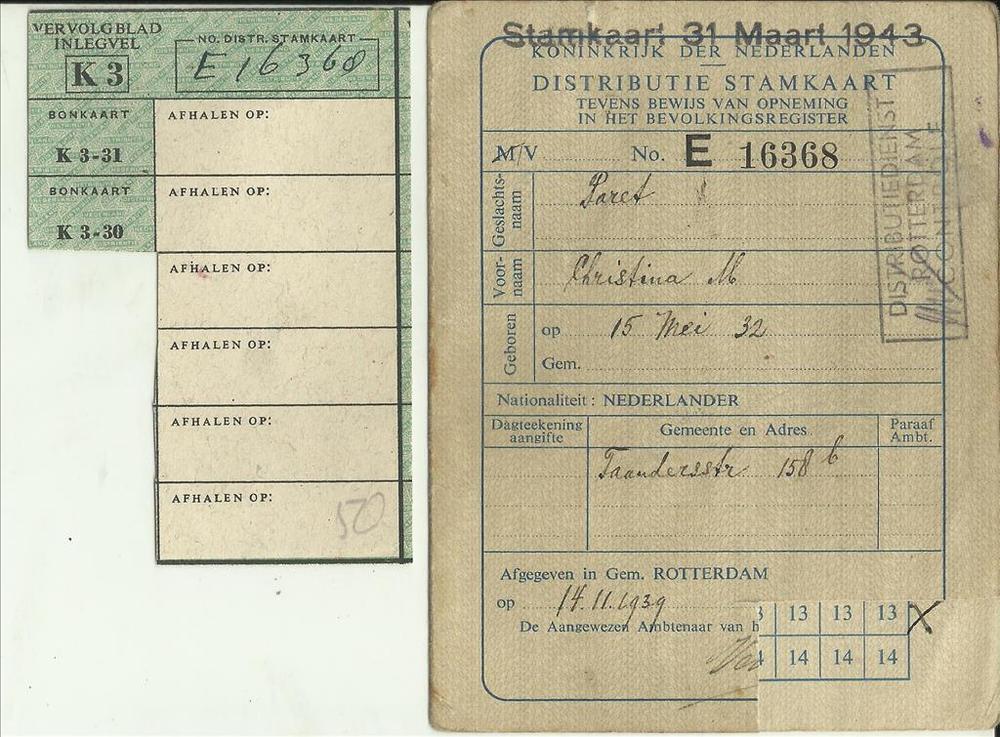 VERVOLGBLAD
INLEGVEL
K 3
NO. DISTR. STAMKAART
E 16368
BONKAART
K 3-31
AFHALEN OP:
BONKAART
K 3-30
AFHALEN OP:
AFHALEN OP:
AFHALEN OP:
AFHALEN OP:
AFHALEN OP:
520
Stamkaart 31 Maart 1943
KONINKRIJK DER NEDERLANDEN
DISTRIBUTIE STAMKAART
TEVENS BEWIJS VAN OPNEMING
IN HET BEVOLKINGSREGISTER
M/V No. E 16368
Geslachts-
naam
Paret
Voor-
naam
Christina M
Geboren
op 15 Mei 32
Gem.
Nationaliteit: NEDERLANDER
Dagteekening
aangifte
Gemeente en Adres
Paraaf
Ambt.
Taandersstr 158 b
Afgegeven in Gem. ROTTERDAM
op 14.11.1939
De Aangewezen Ambtenaar van h
13 13 13
14 14 14
DISTRIBUTIEDIENST
ROTTERDAM